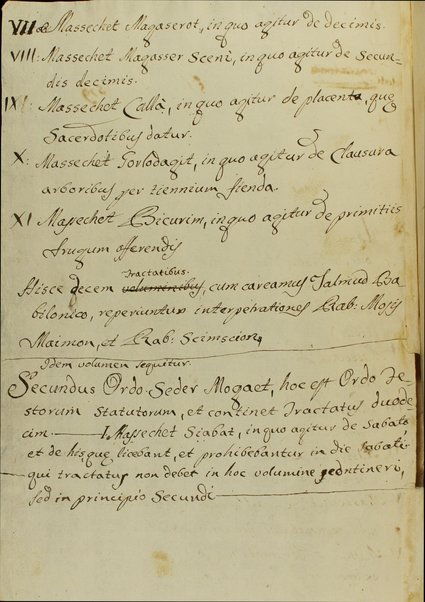 VII a Massechet Magaserot, in quo agitur de decimis.
VIII: Massechet Magasser Scenì, in quo agitur de Secun-
dis decimis.
IX: Massechet Callà, in quo agitur de placenta, que
Sacerdotibus datur.
X: Massechet Gorlàdagit, in quo agitur de Clausura
arboribus per triennium fienda.
XI Massechet Bicurim, in quo agitur de primitiis
frugum offerendis
tractatibus.
Hisce decem voluminibus, cum careamus Talmud Ba-
bilonico, reperiuntur interpetrationes Rab: Mosis
Maimon, et Rab: Scimscion,
Idem volumen sequitur.
Secundus Ordo Seder Mogaet, hoc est Ordo Fe-
storum Statutorum, et continet Tractatus duode-
cim. I. Massechet Sciabat, in quo agitur de Sabato
et de his, que licebant, et prohibebantur in die Sabati
qui tractatus non debet in hoc volumine contineri,
sed in principio Secundi